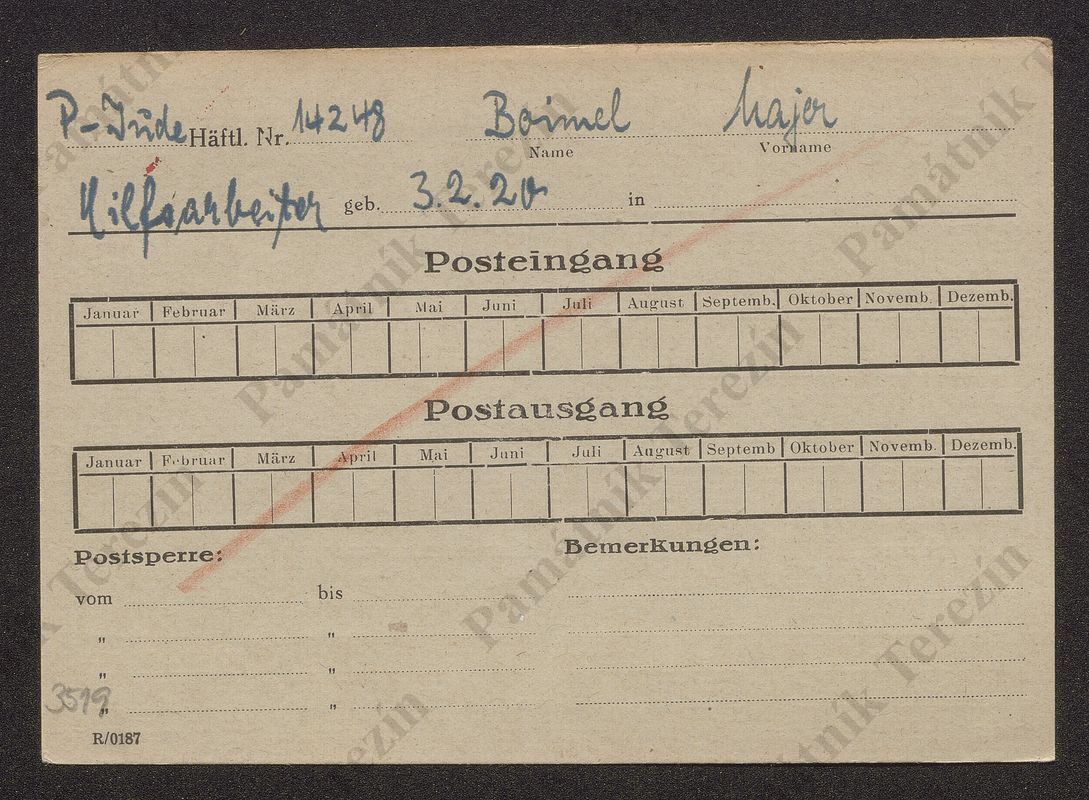 P-Jude Häftl. Nr. 14248 Boimel Majer
Name Vorname
Hilfsarbeiter geb. 3.2.20 in
Posteingang
Januar Februar März April Mai Juni Juli August Septemb. Oktober Novemb. Dezemb.
Postausgang
Januar Februar März April Mai Juni Juli August Septemb Oktober Novemb. Dezemb.
Postsperre: Bemerkungen:
vom bis
" "
" "
3519 " "
R/0187
Památník Terezín